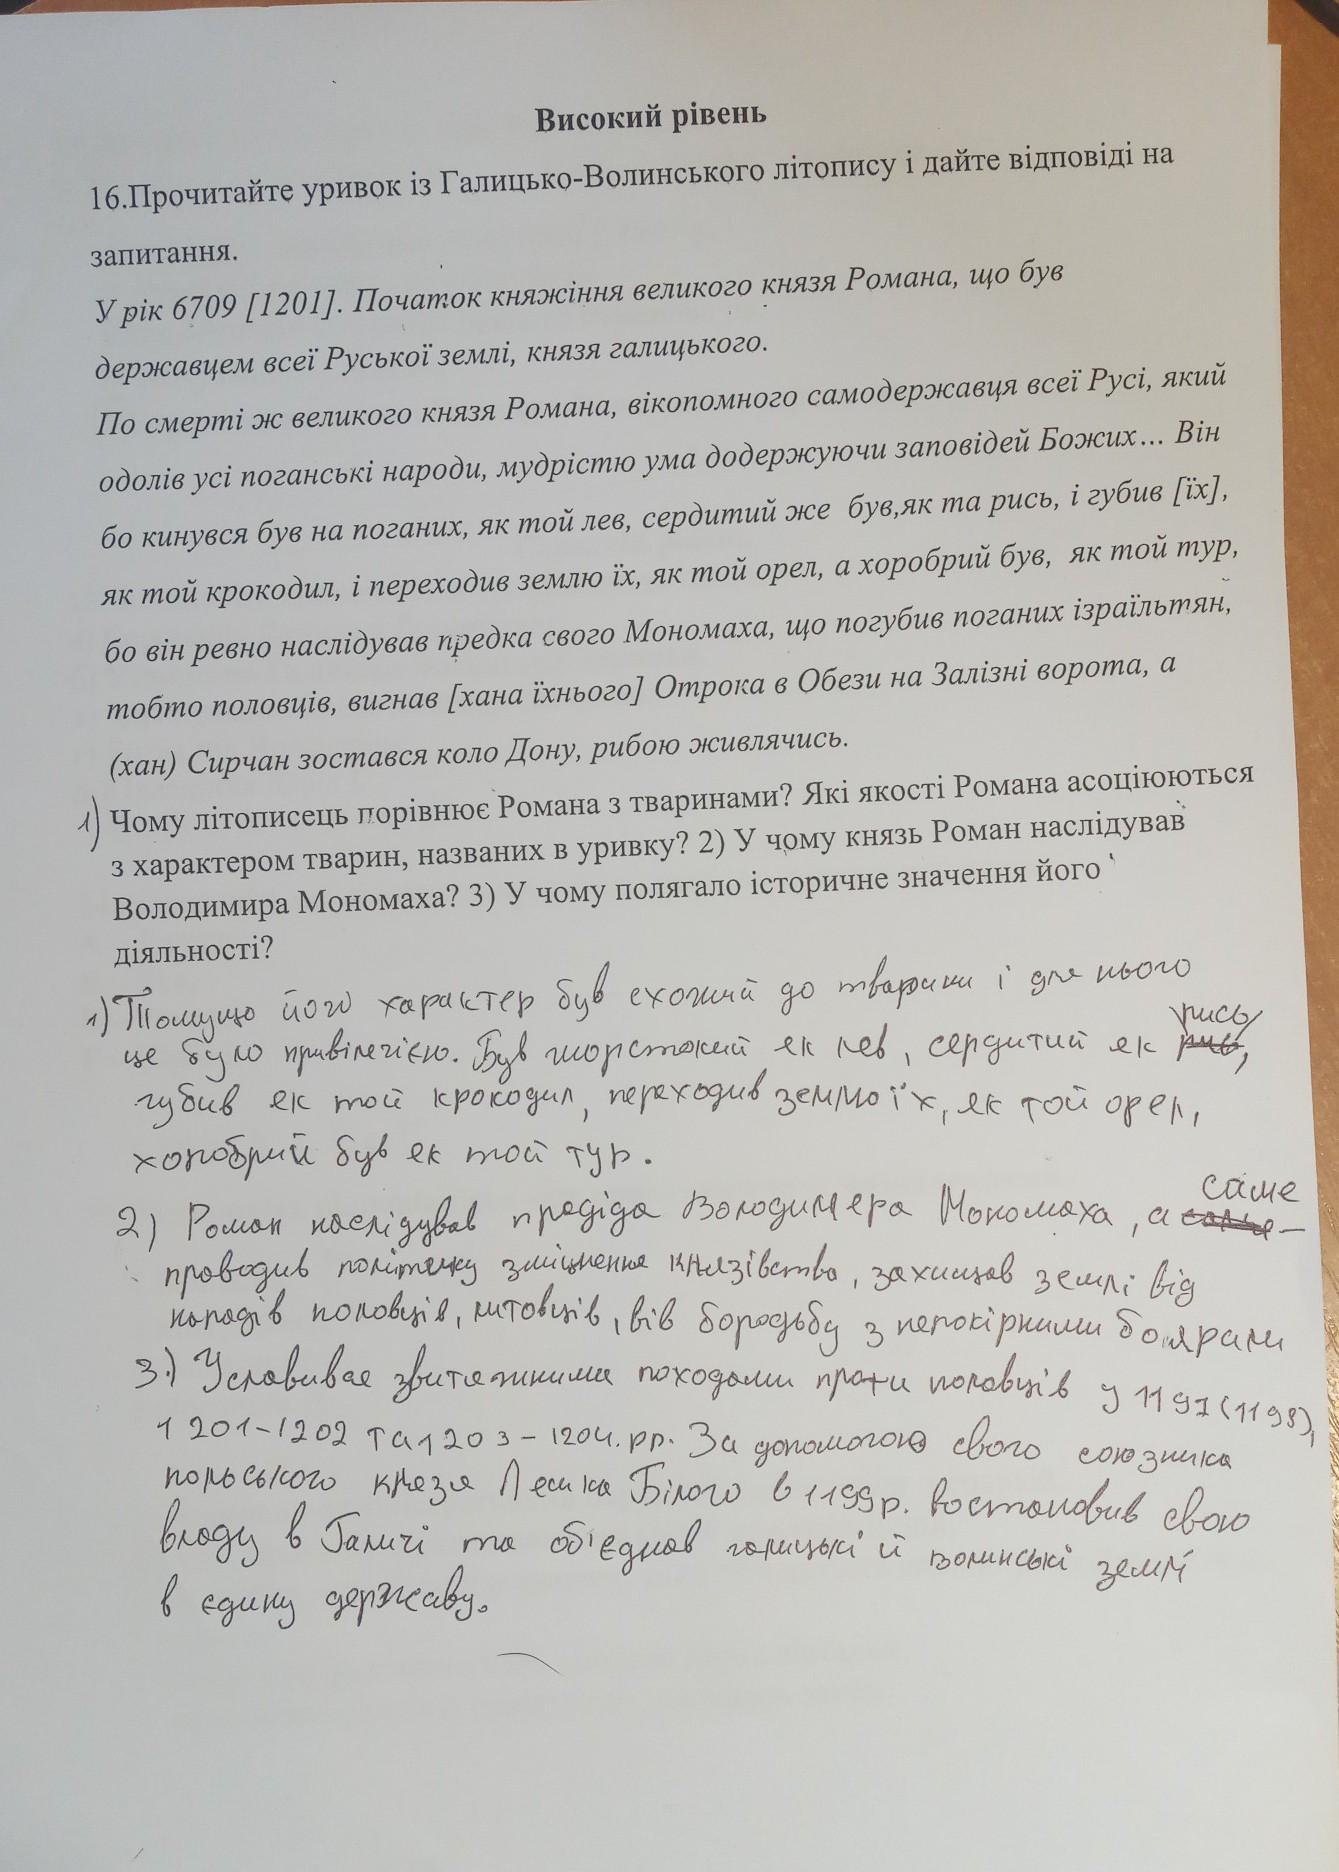 Високий рівень
16.Прочитайте уривок із Галицько-Волинського літопису і дайте відповіді на
запитання.
У рік 6709 [1201]. Початок княжіння великого князя Романа, що був
державцем всеї Руської землі, князя галицького.
По смерті ж великого князя Романа, вікопомного самодержавця всеї Русі, який
одолів усі поганські народи, мудрістю ума додержуючи заповідей Божих... Він
бо кинувся був на поганих, як той лев, сердитий же був,як та рись, і губив [їх],
як той крокодил, і переходив землю їх, як той орел, а хоробрий був, як той тур,
бо він ревно наслідував предка свого Мономаха, що погубив поганих ізраїльтян,
тобто половців, вигнав [хана їхнього] Отрока в Обези на Залізні ворота, а
(хан) Сирчан зостався коло Дону, рибою живлячись.
1) Чому літописець порівнює Романа з тваринами? Які якості Романа асоціюються
з характером тварин, названих в уривку? 2) У чому князь Роман наслідував
Володимира Мономаха? 3) У чому полягало історичне значення його
діяльності?
1) Томущо його характер був схожий до тварини і для нього
це було привілегією. Був жорстокий як лев, сердитий як рись,
губив як той крокодил, переходив землю їх, як той орел,
хоробрий був як той тур.
2) Роман наслідував прадіда Володимера Мономаха, а саме –
проводив політику зміцнення князівства, захищав землі від
нападів половців, литовців, вів бородьбу з непокірними боярами
3.) Уславився звитяжними походами проти половців у 1197(1198),
1201–1202 та 1203–1204.рр. За допомогою свого союзника
польського князя Лешка Білого в 1199р. востановив свою
владу в Галичі та об'єднав галицькі й волинські землі
в єдину державу.